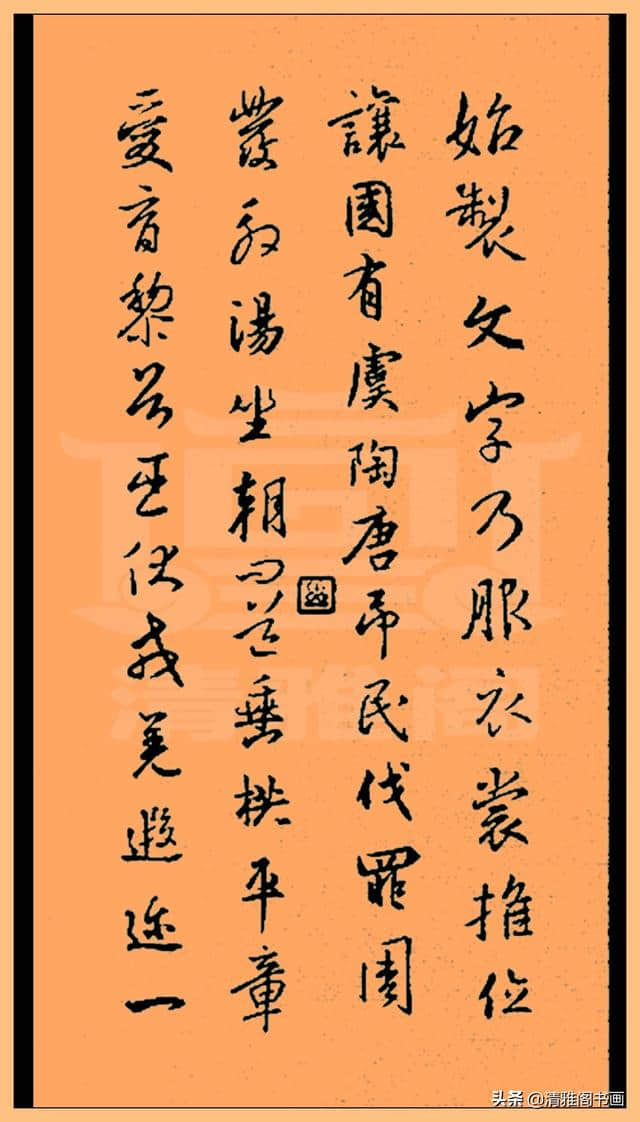 始製文字乃服衣裳推位
讓國有虞陶唐吊民伐罪周
發殷湯坐朝問道垂拱平章
愛育黎首臣伏戎羌遐迩一
清雅阁
头条 @清雅阁书画